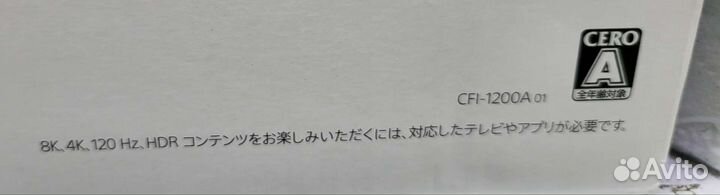 CERO
A
全年齢対象
CFI-1200A 01
8K、4K、120 Hz、HDR コンテンツをお楽しみいただくには、対応したテレビやアプリが必要です。
Avito